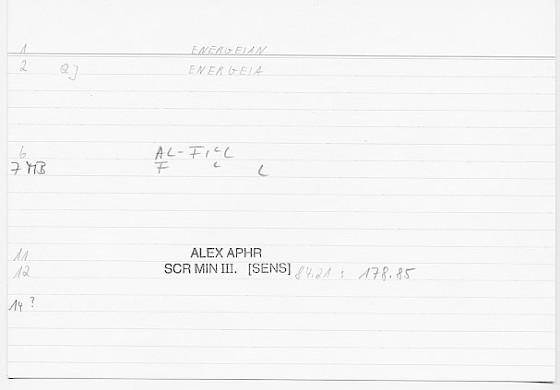 1 ENERGEIAN
2 QJ ENERGEIA
6 AL-FICL
7 MB F C L
11 ALEX APHR
12 SCR MIN III. [SENS] 84.21 : 178.85
14 ?